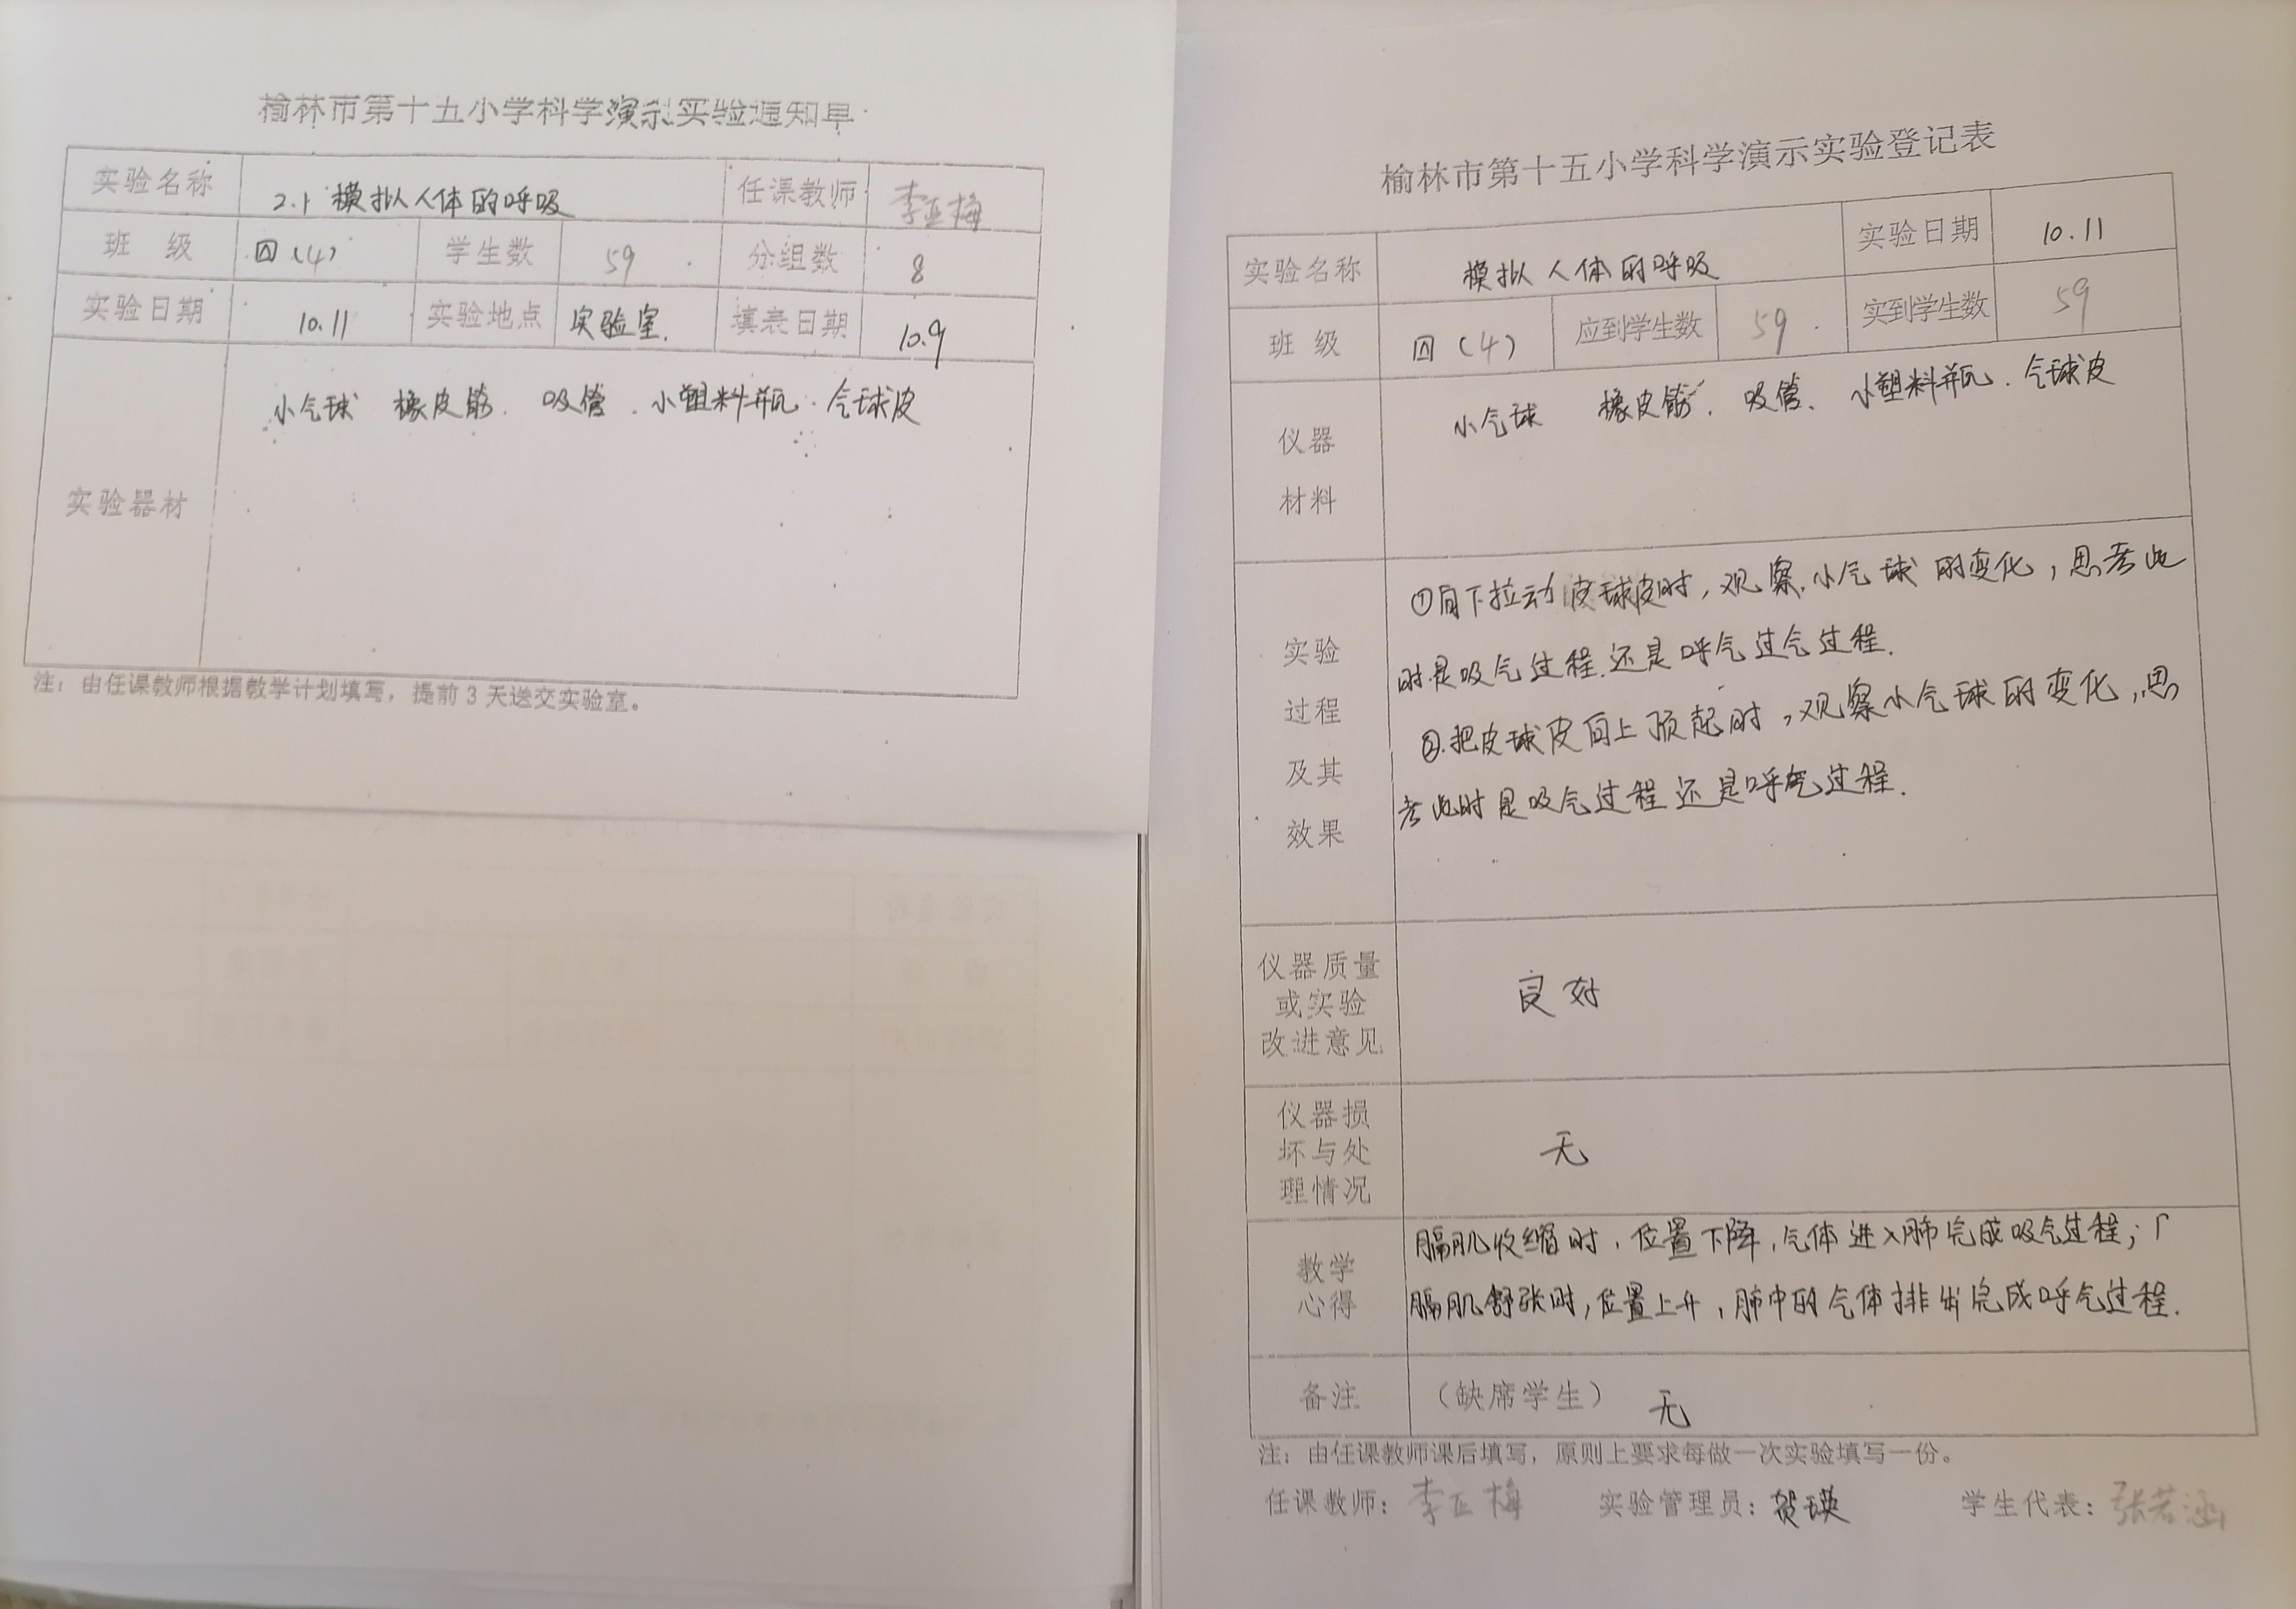 榆林市第十五小学科学演示实验通知单
实验名称 2.1 模拟人体的呼吸 任课教师 李亚梅
班 级 四(4) 学生数 59 分组数 8
实验日期 10.11 实验地点 实验室. 填表日期 10.9
实验器材 小气球 橡皮筋. 吸管. 小塑料瓶. 气球皮
注：由任课教师根据教学计划填写，提前3天送交实验室。
榆林市第十五小学科学演示实验登记表
实验名称 模拟人体的呼吸 实验日期 10.11
班 级 四(4) 应到学生数 59 实到学生数 59
仪器材料 小气球 橡皮筋. 吸管、小塑料瓶. 气球皮
实验过程及其效果
①向下拉动皮球皮时，观察小气球的变化，思考此
时是吸气过程还是呼气过气过程.
②.把皮球皮向上顶起时，观察小气球的变化，思
考此时是吸气过程还是呼气过程.
仪器质量或实验改进意见 良好
仪器损坏与处理情况 无
教学心得
膈肌收缩时，位置下降，气体进入肺完成吸气过程；
膈肌舒张时，位置上升，肺中的气体排出完成呼气过程.
备注 （缺席学生） 无
注：由任课教师课后填写，原则上要求每做一次实验填写一份。
任课教师：李亚梅 实验管理员：贺瑛 学生代表：张若涵